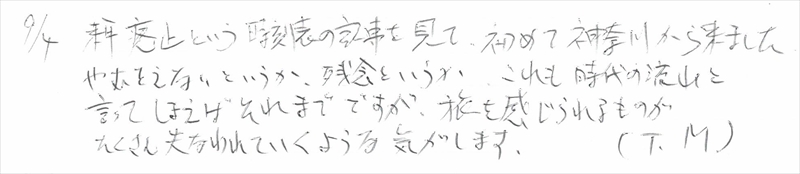 9/4 来年廃止という時刻表の記事を見て、初めて神奈川から来ました
やむをえないというか、残念というか、これも時代の流れと
言ってしまえばそれまでですが、旅を感じられるものが
たくさん失なわれていくような気がします。 (T. M.)